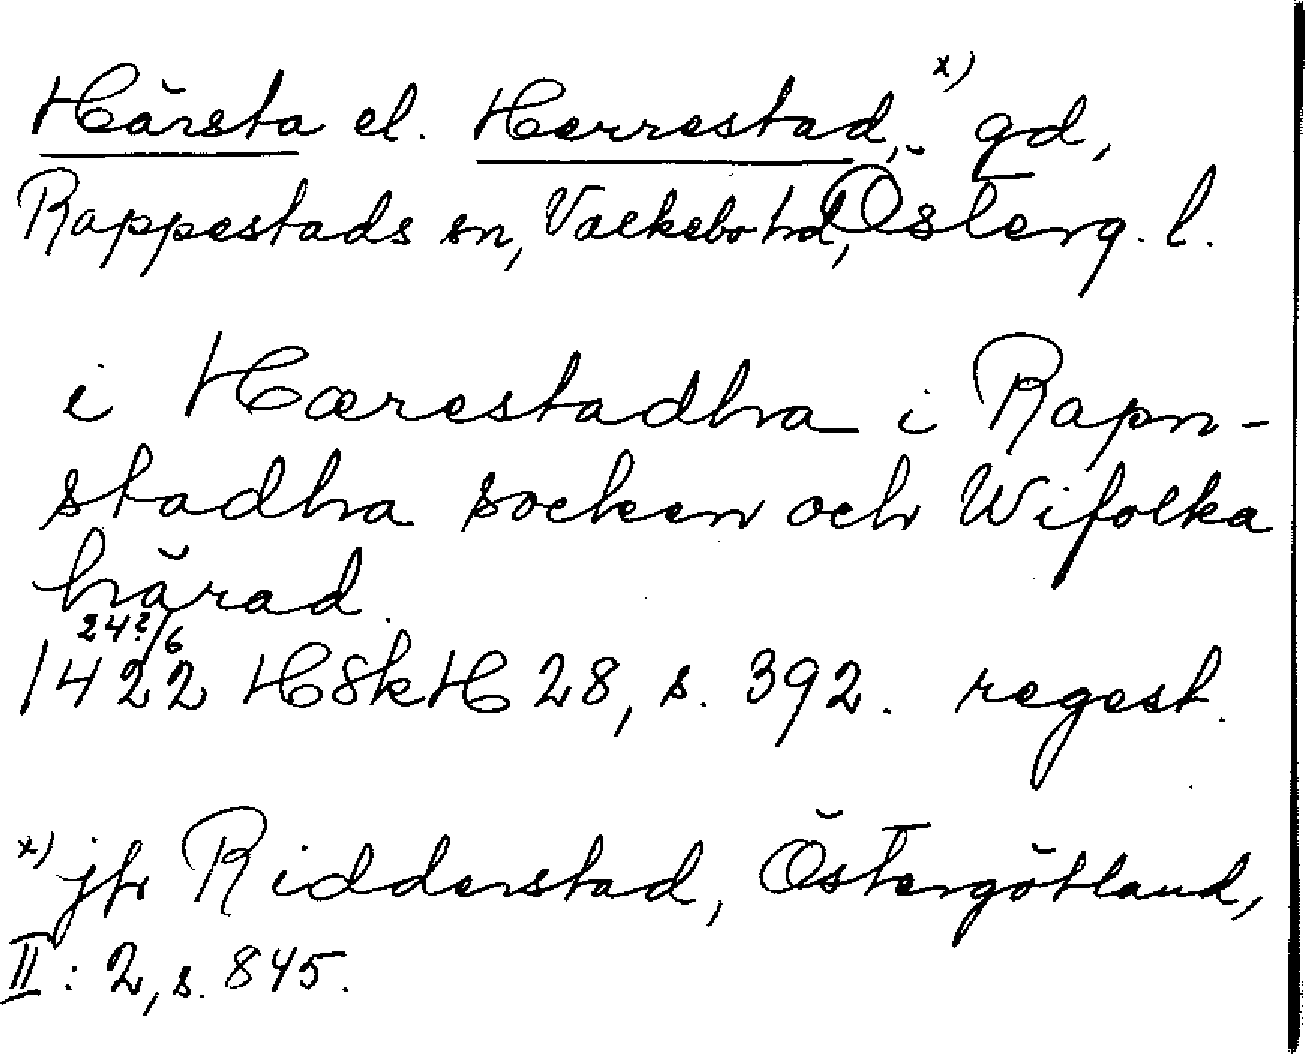 Härsta el. Herrestad,ˣ⁾ gd,
Rappestads sn, Valkebo hd, Österg. l.
i Hærestadha i Rapn-
stadha socken och Wifolka
härad.
24?/6
1422 HSkH 28, s. 392. regest.
x) jfr Ridderstad, Östergötland,
II: 2, s. 845.